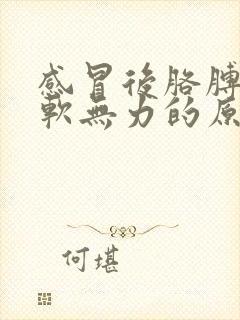 感冒後胳膊
軟無力的原
何堪